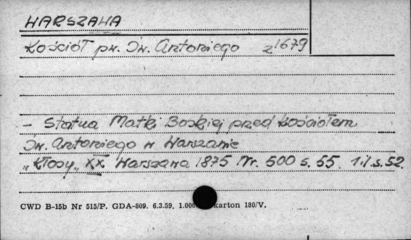 WARSZAWA
Kościół pw. Św. Antoniego z 1679
- Statua Matki Boskiej przed kościołem
Św. Antoniego w Warszawie
„Kłosy„ XX Warszawa 1875 Nr. 500 s. 55. 1.il s. 52.
CWD B-15b Nr 515/P. GDA-809. 6.3.59. 1.000 karton 180/V.